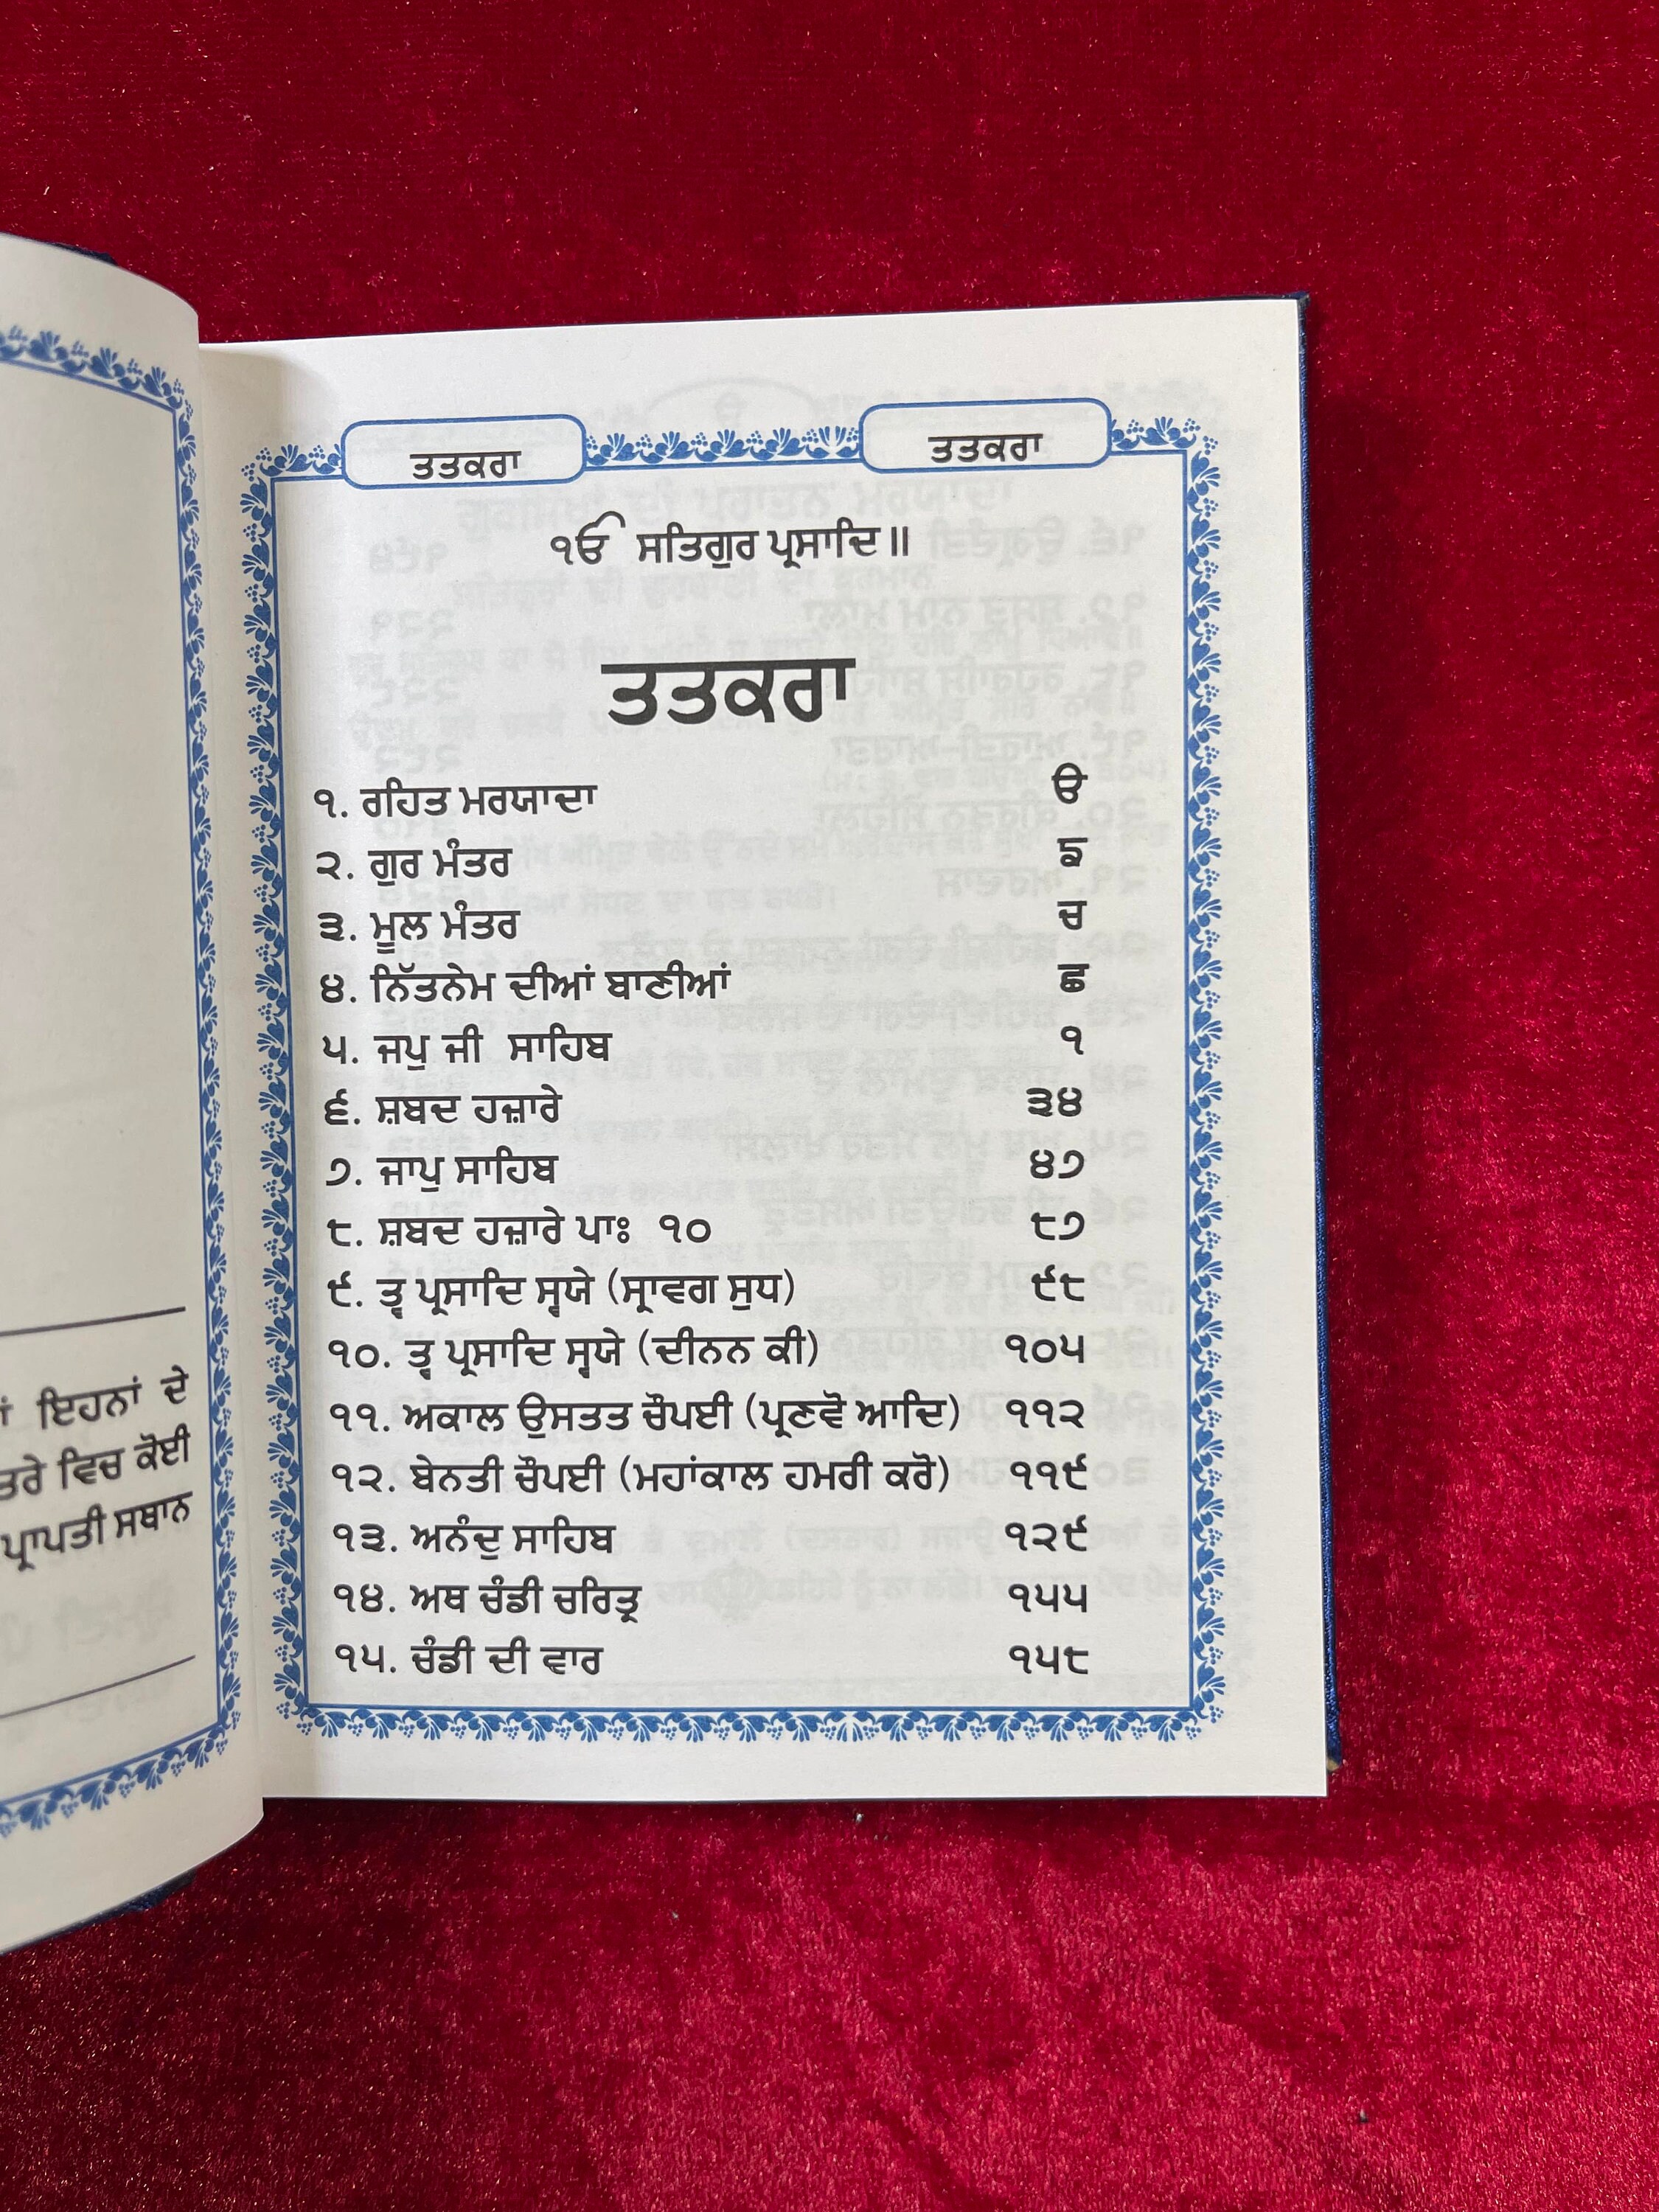 ਾਂ ਇਹਨਾਂ ਦੇ
ਤਰੇ ਵਿਚ ਕੋਈ
ਪ੍ਰਾਪਤੀ ਸਥਾਨ
ਤਤਕਰਾ ਤਤਕਰਾ
ੴ ਸਤਿਗੁਰ ਪ੍ਰਸਾਦਿ॥
ਤਤਕਰਾ
੧. ਰਹਿਤ ਮਰਯਾਦਾ ੳ
੨. ਗੁਰ ਮੰਤਰ ਙ
੩. ਮੂਲ ਮੰਤਰ ਚ
੪. ਨਿੱਤਨੇਮ ਦੀਆਂ ਬਾਣੀਆਂ ਛ
੫. ਜਪੁ ਜੀ ਸਾਹਿਬ ੧
੬. ਸ਼ਬਦ ਹਜ਼ਾਰੇ ੩੪
੭. ਜਾਪੁ ਸਾਹਿਬ ੪੭
੮. ਸ਼ਬਦ ਹਜ਼ਾਰੇ ਪਾਃ ੧੦ ੮੭
੯. ਤ੍ਵ ਪ੍ਰਸਾਦਿ ਸ੍ਵਯੇ (ਸ੍ਰਾਵਗ ਸੁਧ) ੯੮
੧੦. ਤ੍ਵ ਪ੍ਰਸਾਦਿ ਸ੍ਵਯੇ (ਦੀਨਨ ਕੀ) ੧੦੫
੧੧. ਅਕਾਲ ਉਸਤਤ ਚੌਪਈ (ਪ੍ਰਣਵੋ ਆਦਿ) ੧੧੨
੧੨. ਬੇਨਤੀ ਚੌਪਈ (ਮਹਾਂਕਾਲ ਹਮਰੀ ਕਰੋ) ੧੧੯
੧੩. ਅਨੰਦੁ ਸਾਹਿਬ ੧੨੯
੧੪. ਅਥ ਚੰਡੀ ਚਰਿਤ੍ਰ ੧੫੫
੧੫. ਚੰਡੀ ਦੀ ਵਾਰ ੧੫੮